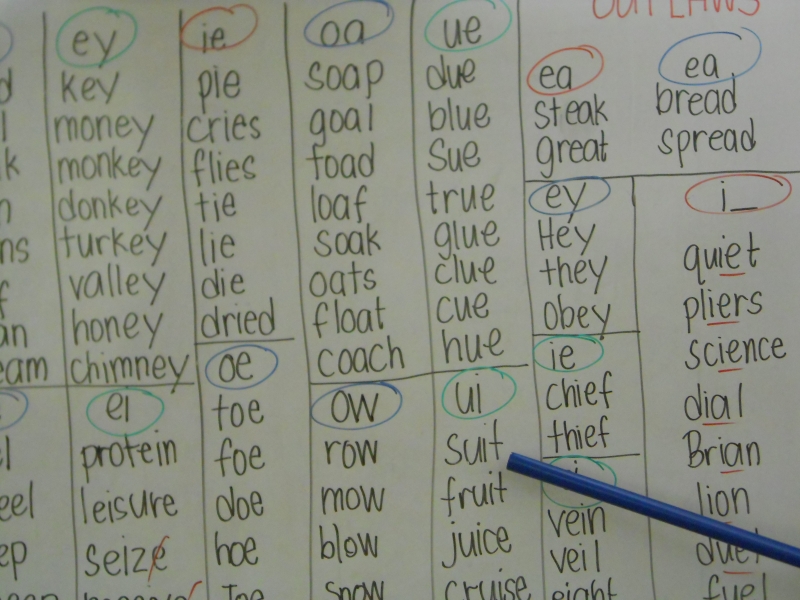 OUTLAWS
ey
key
money
monkey
donkey
turkey
valley
honey
chimney
ei
protein
leisure
seize
ie
pie
cries
flies
tie
lie
die
dried
oe
toe
foe
doe
hoe
Joe
oa
soap
goal
toad
loaf
soak
oats
float
coach
ow
row
mow
blow
snow
ue
due
blue
sue
true
glue
clue
cue
hue
ui
suit
fruit
juice
cruise
ea
steak
great
ey
Hey
they
obey
ie
chief
thief
vein
veil
eight
ea
bread
spread
i_
quiet
pliers
science
dial
Brian
lion
duel
fuel